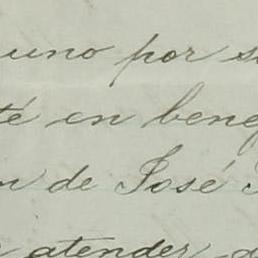 uno por s
té en bene
n de José
atender